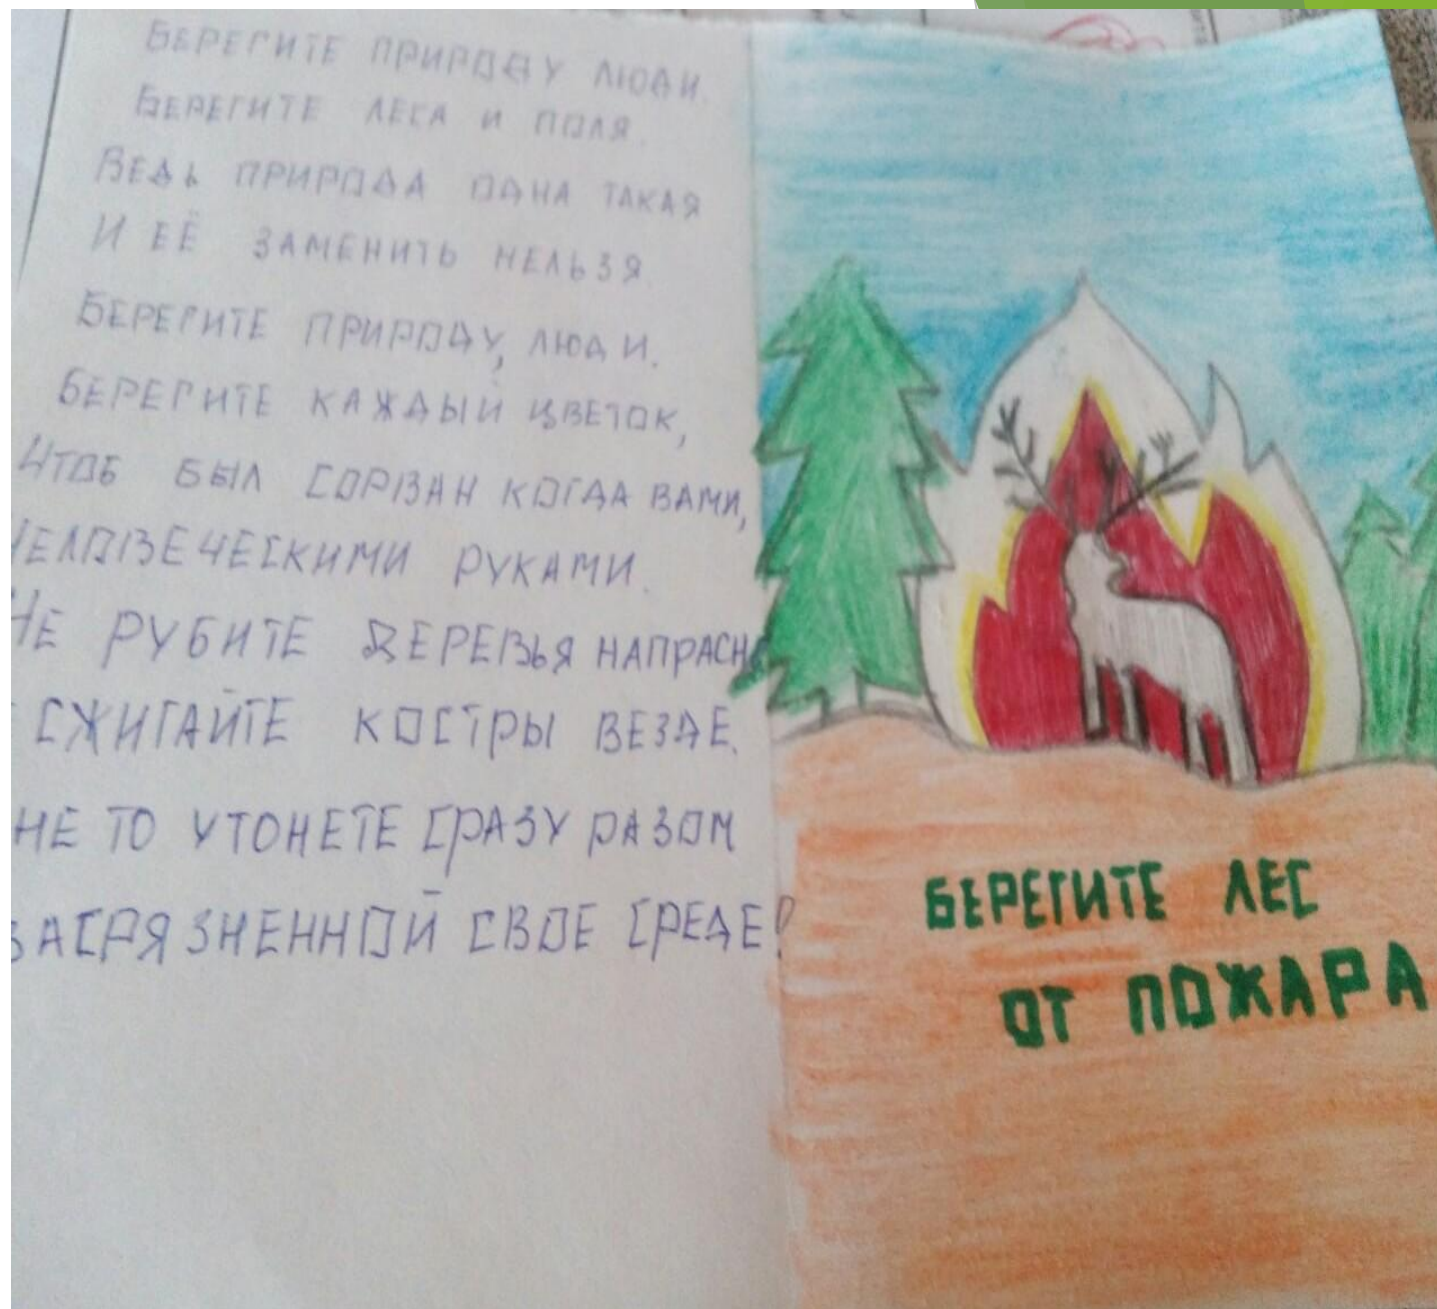 БЕРЕГИТЕ ПРИРОДУ ЛЮДИ.
БЕРЕГИТЕ ЛЕСА И ПОЛЯ.
ВЕДЬ ПРИРОДА ОДНА ТАКАЯ
И ЕЁ ЗАМЕНИТЬ НЕЛЬЗЯ.
БЕРЕГИТЕ ПРИРОДУ, ЛЮДИ.
БЕРЕГИТЕ КАЖДЫЙ ЦВЕТОК,
ЧТОБ БЫЛ СОРВАН КОГДА ВАМИ,
ЧЕЛОВЕЧЕСКИМИ РУКАМИ.
НЕ РУБИТЕ ДЕРЕВЬЯ НАПРАСН
СЖИГАЙТЕ КОСТРЫ ВЕЗДЕ.
НЕ ТО УТОНЕТЕ СРАЗУ РАЗОМ
ЗАГРЯЗНЕННОЙ СВОЕ СРЕДЕ!
БЕРЕГИТЕ ЛЕС
ОТ ПОЖАРА